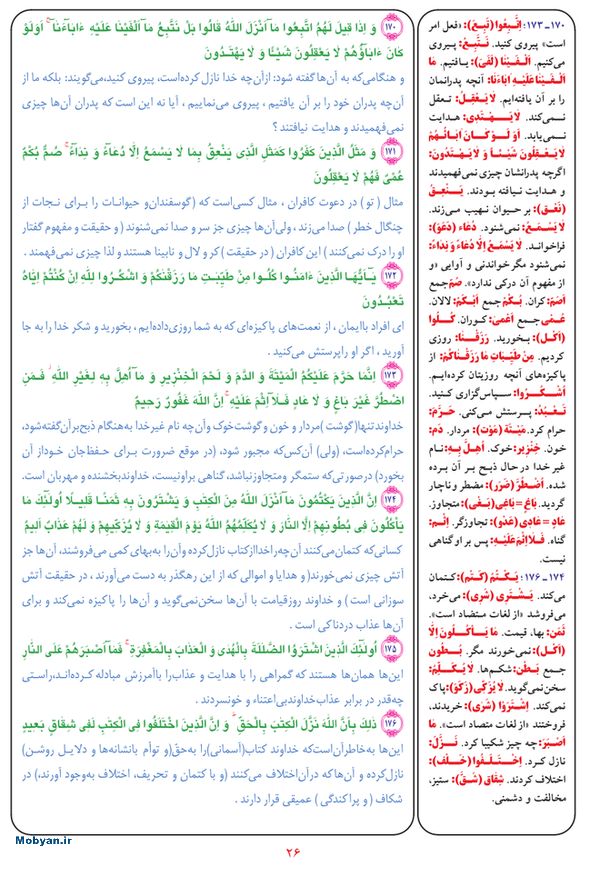 ۱۷۰ وَ اِذَا قِيلَ لَهُمُ اتَّبِعُوا مَآ اَنْزَلَ اللهُ قَالُوا بَلْ نَتَّبِعُ مَآ اَلْفَيْنَا عَلَيْهِ ءَابَآءَنَآ اَوَلَوْ
كَانَ ءَابَآؤُهُمْ لَا يَعْقِلُونَ شَيْئًا وَ لَا يَهْتَدُونَ
و هنگامی‌که به آن‌ها گفته شود: ازآن‌چه خدا نازل کرده‌است، پیروی کنید،می‌گویند: بلکه ما از
آن‌چه پدران خود را بر آن یافتیم ، پیروی می‌نماییم ، آیا نه این است که پدران آن‌ها چیزی
نمی‌فهمیدند و هدایت نیافتند ؟
۱۷۱ وَ مَثَلُ الَّذِينَ كَفَرُوا كَمَثَلِ الَّذِى يَنْعِقُ بِمَا لَا يَسْمَعُ اِلَّا دُعَآءً وَ نِدَآءً صُمٌّ بُكْمٌ
عُمْىٌ فَهُمْ لَا يَعْقِلُونَ
مثال ( تو ) در دعوت کافران ، مثال کسی‌است که (گوسفندان‌و حیوانات را برای نجات از
چنگال خطر ) صدا می‌زند ، ولی‌آن‌ها چیزی جز سر و صدا نمی‌شنوند ( و حقیقت و مفهوم گفتار
او را درک نمی‌کنند ) این کافران ( در حقیقت ) کر و لال و نابینا هستند و لذا چیزی نمی‌فهمند .
۱۷۲ يَآ اَيُّهَا الَّذِينَ ءَامَنُوا كُلُوا مِنْ طَيِّبٰتِ مَا رَزَقْنٰكُمْ وَ اشْكُرُوا لِلّٰهِ اِنْ كُنْتُمْ اِيَّاهُ
تَعْبُدُونَ
ای افراد باایمان ، از نعمت‌های پاکیزه‌ای که به شما روزی‌داده‌ایم ، بخورید و شکر خدا را به جا
آورید ، اگر او راپرستش می‌کنید .
۱۷۳ اِنَّمَا حَرَّمَ عَلَيْكُمُ الْمَيْتَةَ وَ الدَّمَ وَ لَحْمَ الْخِنْزِيرِ وَ مَآ اُهِلَّ بِهِ لِغَيْرِ اللهِ فَمَنِ
اضْطُرَّ غَيْرَ بَاغٍ وَ لَا عَادٍ فَلَآ اِثْمَ عَلَيْهِ اِنَّ اللهَ غَفُورٌ رَحِيمٌ
خداوندتنها(گوشت )مردار و خون وگوشت‌خوک وآن‌چه نام غیرخدا به‌هنگام ذبح‌برآن‌گفته‌شود،
حرام‌کرده‌است، (ولی) آن‌کس‌که مجبور شود، (در موقع ضرورت برای حفظ‌جان خوداز آن
بخورد) درصورتی‌که ستمگر ومتجاوزنباشد، گناهی براونیست، خداوندبخشنده و مهربان است.
۱۷۴ اِنَّ الَّذِينَ يَكْتُمُونَ مَآ اَنْزَلَ اللهُ مِنَ الْكِتٰبِ وَ يَشْتَرُونَ بِهِ ثَمَنًا قَلِيلًا اُولٰٓئِكَ مَا
يَأْكُلُونَ فِى بُطُونِهِمْ اِلَّا النَّارَ وَ لَا يُكَلِّمُهُمُ اللهُ يَوْمَ الْقِيٰمَةِ وَ لَا يُزَكِّيهِمْ وَ لَهُمْ عَذَابٌ اَلِيمٌ
کسانی‌که کتمان‌می‌کنند آن‌چه راخداازکتاب نازل‌کرده وآن‌را به‌بهای کمی می‌فروشند، آن‌ها جز
آتش چیزی نمی‌خورند( و هدایا و اموالی که از این رهگذر به دست می‌آورند ، در حقیقت آتش
سوزانی است ) و خداوند روزقیامت با آن‌ها سخن‌نمی‌گوید و آن‌ها را پاکیزه نمی‌کند و برای
آن‌ها عذاب دردناکی است .
۱۷۵ اُولٰٓئِكَ الَّذِينَ اشْتَرَوُا الضَّلٰلَةَ بِالْهُدٰى وَ الْعَذَابَ بِالْمَغْفِرَةِ فَمَآ اَصْبَرَهُمْ عَلَى النَّارِ
این‌ها همان‌ها هستند که گمراهی را با هدایت و عذاب‌را باآمرزش مبادله کرده‌اند،راستی
چه‌قدر در برابر عذاب‌خداوندبی‌اعتناء و خونسردند .
۱۷۶ ذٰلِكَ بِاَنَّ اللهَ نَزَّلَ الْكِتٰبَ بِالْحَقِّ وَ اِنَّ الَّذِينَ اخْتَلَفُوا فِى الْكِتٰبِ لَفِى شِقَاقٍ بَعِيدٍ
این‌ها به‌خاطرآن‌است‌که خداوند کتاب(آسمانی)را به‌حق(و توأم بانشانه‌ها و دلایل روشن)
نازل‌کرده و آن‌ها‌که درآن‌اختلاف می‌کنند (و با کتمان و تحریف، اختلاف به‌وجود آورند)، در
شکاف ( و پراکندگی ) عمیقی قرار دارند .
۱۷۰ـ۱۷۳؛ اِتَّبِعُوا (تَبِعَ): «فعل امر
است» پیروی کنید. نَتَّبِعُ: پیروی
می‌کنیم. اَلْفَيْنَا (لَفَىَ): یافتیم. مَا
اَلْفَيْنَا عَلَيْهِ ابَاءَنَا: آنچه پدرانمان
را بر آن یافته‌ایم. لَا يَعْقِلُ: تعقل
نمی‌کند. لَا يَهْتَدِى: هدایت
نمی‌یابد. اَوَ لَوْ كَانَ ابَائُهُمْ
لَا يَعْقِلُونَ شَيْئًا وَ لَا يَهْتَدُونَ:
اگرچه پدرانشان چیزی نمی‌فهمیدند
و هدایت نیافته بودند. يَنْعِقُ
(نَعَقَ): بر حیوان نهیب می‌زند.
لَا يَسْمَعُ: نمی‌شنود. دُعَاء (دَعَوَ):
فراخواند. لَا يَسْمَعُ اِلَّا دُعَاءً وَ نِدَاءً:
نمی‌شنود مگر خواندنی و آوایی «و
از مفهوم آن درکی ندارد». صُمّ جمع
اَصَمّ: کران. بُكْمٌ جمع اَبْكُمْ: لالان.
عُمْى جمع اَعْمَىٰ: کوران. كُلُوا
(اَكَلَ): بخورید. رَزَقْنَا: روزی
کردیم. مِنْ طَيِّبَاتِ مَا رَزَقْنَاكُمْ: از
پاکیزه‌های آنچه روزیتان کرده‌ایم.
اُشْكُرُوا: سپاس‌گزاری کنید.
تَعْبُدُ: پرستش می‌کنی. حَرَّمَ:
حرام کرد. مَيْتَة (مَوَتَ): مردار. دَم:
خون. خِنْزِير: خوک. اُهِلَّ بِهِ: نام
غیر خدا در حال ذبح بر آن برده
شده. اُضْطُرَّ (ضَرَرَ): مضطر و ناچار
گردید. بَاغ = بَاغِى (بَغَىَ): متجاوز.
عَادٍ = عَادِى (عَدَوَ): تجاوزگر. اِثْم:
گناه. فَلَا اِثْمَ عَلَيْهِ: پس بر او گناهی
نیست.
۱۷۴ـ۱۷۶؛ يَكْتُمُ (كَتَمَ): کتمان
می‌کند. يَشْتَرِى (شَرَىَ): می‌خرد،
می‌فروشد «از لغات متضاد است».
ثَمَن: بها، قیمت. مَا يَأْكُلُونَ اِلَّا
(اَكَلَ): نمی‌خورند مگر. بُطُون
جمع بَطْن: شکم‌ها. لَا يُكَلِّمُ:
سخن نمی‌گوید. لَا يُزَكِّى (زَكَوَ): پاک
نمی‌کند. اِشْتَرَوْا (شَرَىَ): خریدند،
فروختند «از لغات متضاد است». مَا
اَصْبَرَ: چه چیز شکیبا کرد. نَزَّلَ:
نازل کرد. اِخْتَلَفُوا (خَلَفَ):
اختلاف کردند. شِقَاق (شَقَّ): ستیز،
مخالفت و دشمنی.
Mobyan.ir
۲۶